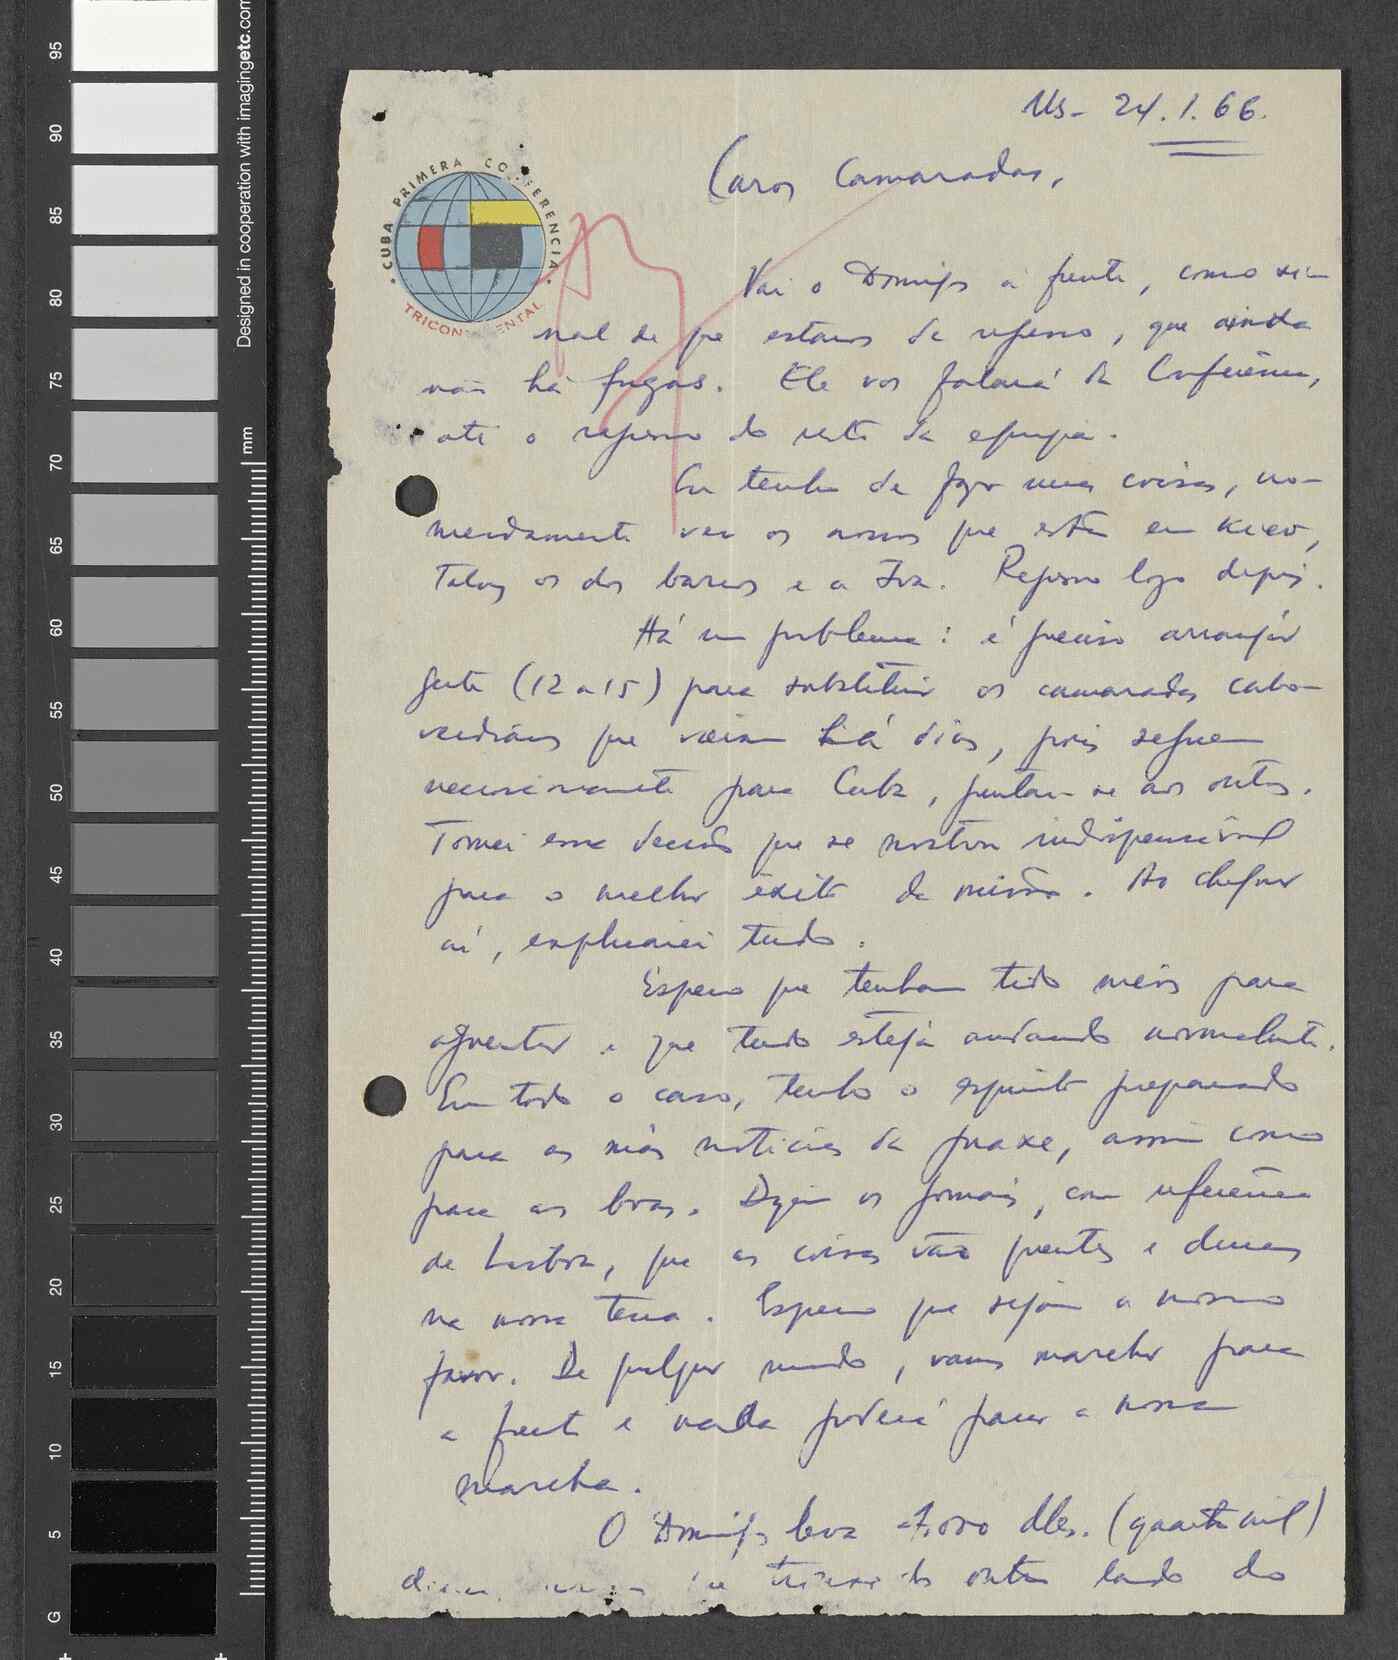 95
90
85
80
75
70
65
60
55
50
45
40
35
30
25
20
15
10
5
G
mm
Designed in cooperation with imagingetc.com
CUBA PRIMERA CONFERENCIA
TRICONTINENTAL
24.1.66.
Caros Camaradas,
Vai o Domingos à frente, como si-
nal de que estamos de regresso, que ainda
não há fugas. Ele vos falará da Conferência,
até o regresso do resto da equipa.
Eu tenho de fazer umas coisas, no-
meadamente ver os nossos que estão em Kiev,
Talvez os dos barcos e a Iva. Regresso logo depois.
Há um problema: é preciso arranjar
gente (12 a 15) para substituir os camaradas cabo-
verdianos que vieram há dias, pois seguem
necessariamente para Cuba, juntar-se aos outros.
Tomei essa decisão que se mostrou indispensável
para o melhor êxito da missão. Ao chegar
aí, explicarei tudo.
Espero que tenham tido meios para
aguentar e que tudo esteja andando normalmente.
Em todo o caso, tenho o espírito preparado
para as más notícias da praxe, assim como
para as boas. Dizem os jornais, com referência
de Lisboa, que as coisas vão quentes e duras
na nossa terra. Espero que sejam a nosso
favor. De qualquer modo, vamos marchar para
a frente e nada poderá parar a nossa
marcha.
O Domingos leva 4.000 dls. (quatro mil)
outro lado do